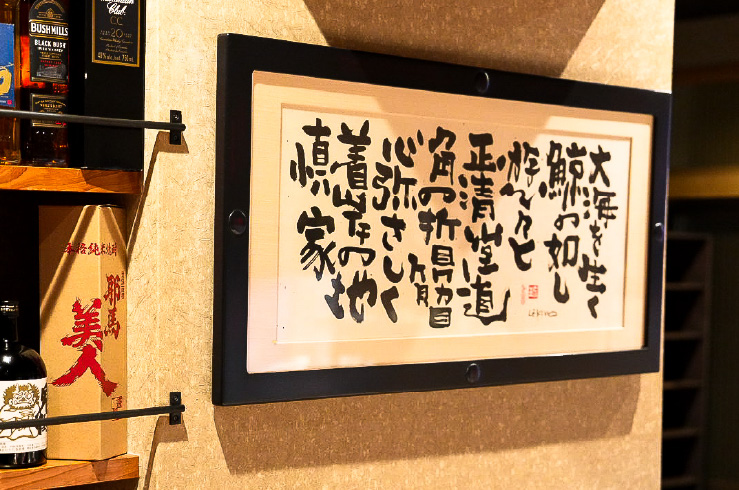 大海を生く
鯨の如し
游々と
正清堂道
角の折
心弥さしく
着岸の地
慎家
BUSHMILLS
BLACK BUSH
Club
CC
20
本格純米焼酎
耶馬
美人